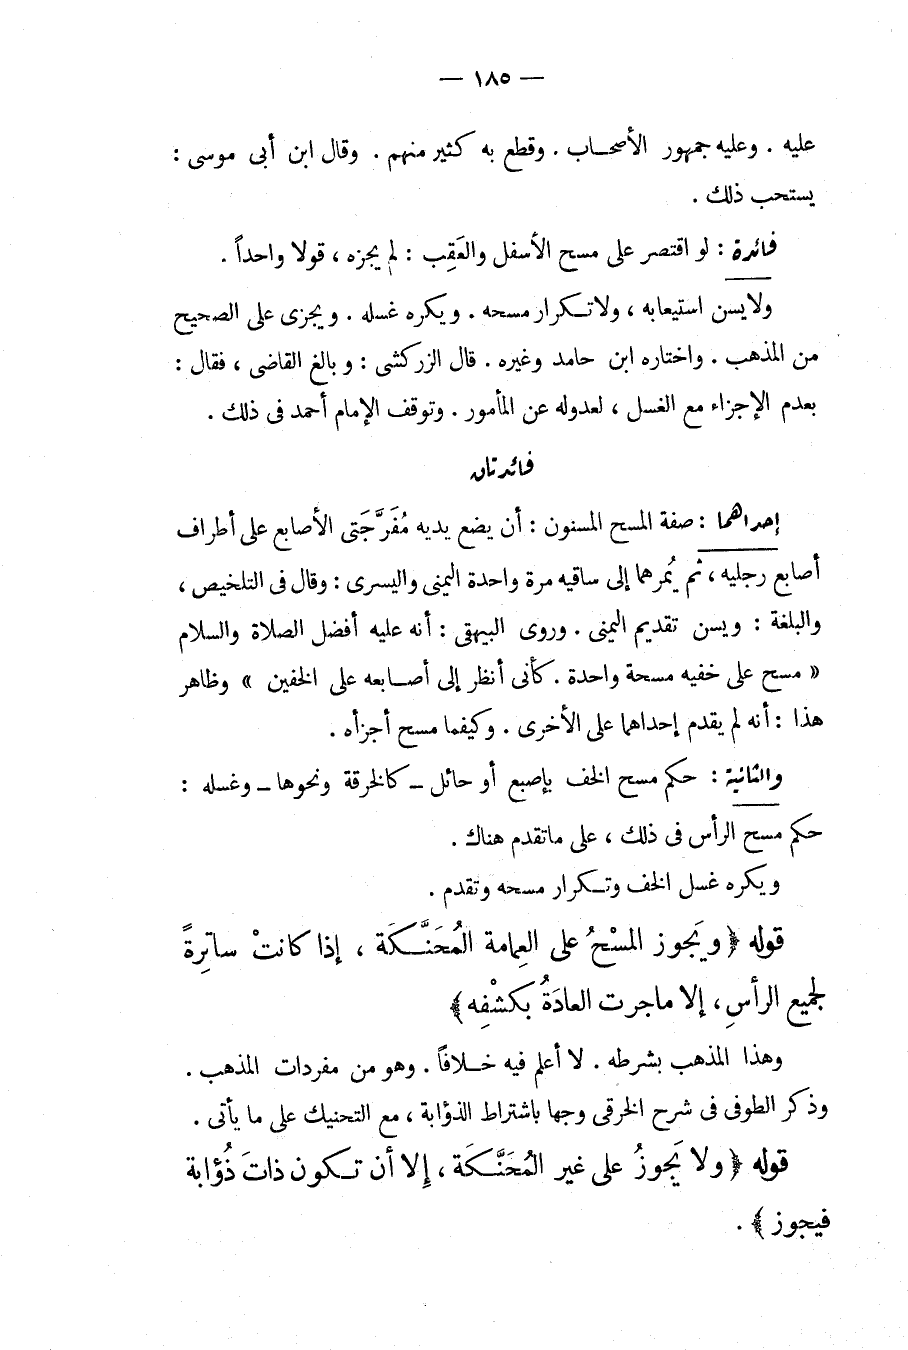 — ١٨٥ —
عليه . وعليه جمهور الأصحـاب . وقطع به كثير منهم . وقال ابن أبى موسى :
يستحب ذلك .
فائدة : لو اقتصر على مسح الأسفل والعَقِب : لم يجزه ، قولا واحداً .
ولايسن استيعابه ، ولاتـكرار مسحه . ويكره غسله . ويجزى على الصحيح
من المذهب . واختاره ابن حامد وغيره . قال الزركشى : وبالغ القاضى ، فقال :
بعدم الإجزاء مع الغسل ، لعدوله عن المأمور . وتوقف الإمام أحمد فى ذلك .
فائدتان
إحداهما : صفة المسح المسنون : أن يضع يديه مُفَرَّجَتى الأصابع على أطراف
أصابع رجليه ، ثم يُمرهما إلى ساقيه مرة واحدة اليمنى واليسرى : وقال فى التلخيص ،
والبلغة : ويسن تقديم اليمنى . وروى البيهقى : أنه عليه أفضل الصلاة والسلام
« مسح على خفيه مسحة واحدة . كأنى أنظر إلى أصـابعه على الخفين » وظاهر
هذا : أنه لم يقدم إحداهما على الأخرى . وكيفما مسح أجزأه .
والثانية : حكم مسح الخف بإصبع أو حائل ـ كالخرقة ونحوها ـ وغسله :
حكم مسح الرأس فى ذلك ، على ماتقدم هناك .
ويكره غسل الخف وتـكرار مسحه وتقدم .
قوله ﴿ ويَجوز المسْحُ على العِمامة المُحَنَّـكَة ، إذا كانتْ ساتِرةً
لجميع الرأسِ ، إلا ماجرت العادَةُ بكشْفِه ﴾
وهذا المذهب بشرطه . لا أعلم فيه خـلافاً . وهو من مفردات المذهب .
وذكر الطوفى فى شرح الخرقى وجها باشتراط الذؤابة ، مع التحنيك على ما يأتى .
قوله ﴿ ولا يَجوزُ على غير المُحَنَّـكَة ، إِلا أن تـكون ذاتَ ذُؤابة
فيجوز ﴾ .